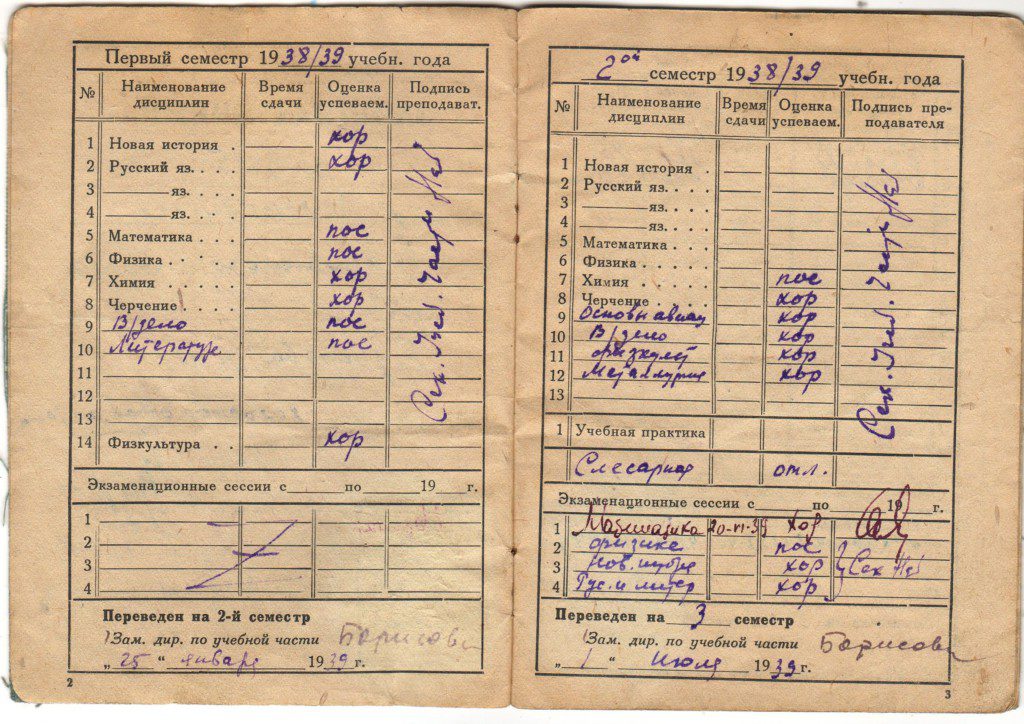 Первый семестр 1938/39 учебн. года
№ Наименование дисциплин Время сдачи Оценка успеваем. Подпись преподават.
1 Новая история . хор
2 Русский яз. . . . хор
3 ——— яз. . . .
4 ——— яз. . . .
5 Математика . . . пос
6 Физика . . . . пос
7 Химия . . . . хор
8 Черчение . . . хор
9 В/дело пос
10 Литература пос
11
12
13
14 Физкультура . . хор
Сек. Учеб. Части
Экзаменационные сессии с____ по____ 19__ г.
1
2
3
4
Переведен на 2-й семестр
Зам. дир. по учебной части Борисова
„ 25 “ января 1939 г.
2
2ой семестр 1938/39 учебн. года
№ Наименование дисциплин Время сдачи Оценка успеваем. Подпись преподавателя
1 Новая история .
2 Русский яз. . . .
3 ——— яз. . . .
4 ——— яз. . . .
5 Математика . . .
6 Физика . . . .
7 Химия . . . . пос
8 Черчение . . . хор
9 Основы авиац хор
10 В/дело хор
11 физкульт хор
12 Металлургия хор
13
Сек. Учеб. Части
1 Учебная практика
Слесарная отл.
Экзаменационные сессии с____ по____ 19__ г.
1 Математика 20-VI-39 хор
2 физика пос
3 Нов. истор хор Сек
4 Рус. и литер хор
Переведен на 3 семестр
Зам. дир. по учебной части Борисова
„ 1 “ Июля 1939 г.
3